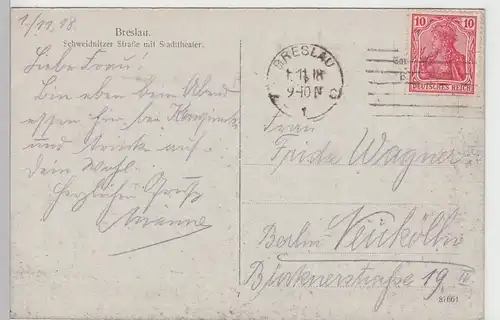 1./11.18.
Breslau.
Schweidnitzer Straße mit Stadttheater.
Liebe Frau!
Bin eben beim Abend
essen hier bei
und trinke auf
dein Wohl.
Herzlichen Gruß
BRESLAU
1.11.18
9-10 N
1
10 10
DEUTSCHES REICH
Frau
Frida Wagner
Berlin Neukölln
Bürknerstraße 19 III
87661